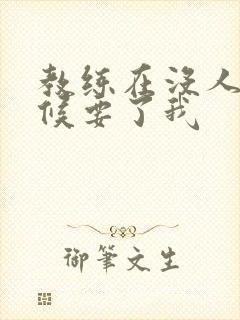 教练在没人
候要了我
御笔文生